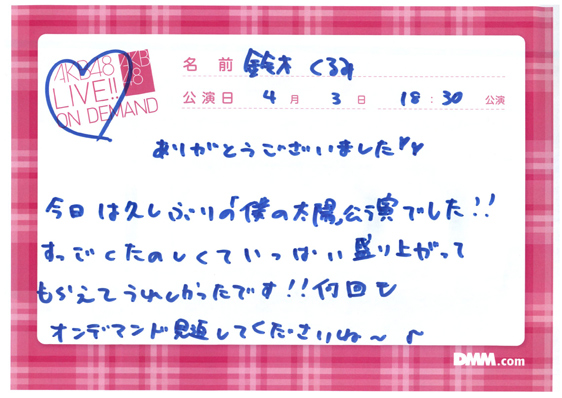 AKB48
LIVE!!
ON DEMAND
AKB
48
名 前 鈴木 くるみ
公演日 4 月 3 日 18:30 公演
ありがとうございました♡♡
今日は久しぶりの「僕の太陽」公演でした!!
すっごくたのしくていっぱい盛り上がって
もらえてうれしかったです!!何回も
オンデマンド見返してくださいね〜♪
DMM.com